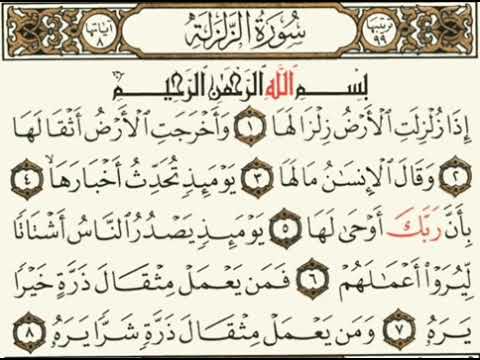 ترتيبها ٩٩ سُورَةُ الزَّلْزَلَةِ آياتها ٨
بِسْمِ اللَّهِ الرَّحْمَٰنِ الرَّحِيمِ
إِذَا زُلْزِلَتِ الْأَرْضُ زِلْزَالَهَا ١ وَأَخْرَجَتِ الْأَرْضُ أَثْقَالَهَا
٢ وَقَالَ الْإِنسَانُ مَا لَهَا ٣ يَوْمَئِذٍ تُحَدِّثُ أَخْبَارَهَا ٤
بِأَنَّ رَبَّكَ أَوْحَىٰ لَهَا ٥ يَوْمَئِذٍ يَصْدُرُ النَّاسُ أَشْتَاتًا
لِّيُرَوْا أَعْمَالَهُمْ ٦ فَمَن يَعْمَلْ مِثْقَالَ ذَرَّةٍ خَيْرًا
يَرَهُ ٧ وَمَن يَعْمَلْ مِثْقَالَ ذَرَّةٍ شَرًّا يَرَهُ ٨